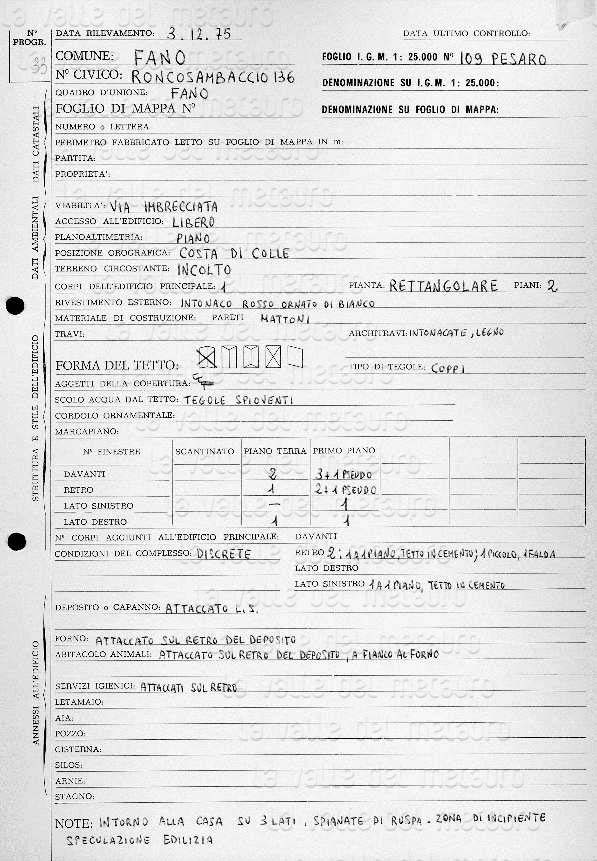 N° PROGR.
DATA RILEVAMENTO: 3.12.75 DATA ULTIMO CONTROLLO:
COMUNE: FANO FOGLIO I.G.M. 1: 25.000 N° 109 PESARO
N° CIVICO: RONCOSAMBACCIO 136 DENOMINAZIONE SU I.G.M. 1: 25.000:
QUADRO D'UNIONE: FANO
FOGLIO DI MAPPA N° DENOMINAZIONE SU FOGLIO DI MAPPA:
DATI CATASTALI
NUMERO o LETTERA
PERIMETRO FABBRICATO LETTO SU FOGLIO DI MAPPA IN m:
PARTITA:
PROPRIETA':
DATI AMBIENTALI
VIABILITA': VIA IMBRECCIATA
ACCESSO ALL'EDIFICIO: LIBERO
PLANOALTIMETRIA: PIANO
POSIZIONE OROGRAFICA: COSTA DI COLLE
TERRENO CIRCOSTANTE: INCOLTO
STRUTTURA E STILE DELL'EDIFICIO
CORPI DELL'EDIFICIO PRINCIPALE: 1 PIANTA: RETTANGOLARE PIANI: 2
RIVESTIMENTO ESTERNO: INTONACO ROSSO ORNATO DI BIANCO
MATERIALE DI COSTRUZIONE: PARETI MATTONI
TRAVI: ARCHITRAVI: INTONACATE, LEGNO
FORMA DEL TETTO: TIPO DI TEGOLE: COPPI
AGGETTI DELLA COPERTURA:
SCOLO ACQUA DAL TETTO: TEGOLE SPIOVENTI
CORDOLO ORNAMENTALE:
MARCAPIANO:
N° FINESTRE SCANTINATO PIANO TERRA PRIMO PIANO
DAVANTI 2 3+1 PSEUDO
RETRO 1 2+1 PSEUDO
LATO SINISTRO – 1
LATO DESTRO 1 1
N° CORPI AGGIUNTI ALL'EDIFICIO PRINCIPALE: DAVANTI
CONDIZIONI DEL COMPLESSO: DISCRETE RETRO 2: 1 A 1 PIANO, TETTO IN CEMENTO; 1 PICCOLO, 1 FALDA
LATO DESTRO
LATO SINISTRO 1 A 1 PIANO, TETTO IN CEMENTO
ANNESSI ALL'EDIFICIO
DEPOSITO o CAPANNO: ATTACCATO L.S.
FORNO: ATTACCATO SUL RETRO DEL DEPOSITO
ABITACOLO ANIMALI: ATTACCATO SUL RETRO DEL DEPOSITO, A FIANCO AL FORNO
SERVIZI IGIENICI: ATTACCATI SUL RETRO
LETAMAIO:
AIA:
POZZO:
CISTERNA:
SILOS:
ARNIE:
STAGNO:
NOTE: INTORNO ALLA CASA SU 3 LATI, SPIANATE DI RUSPA - ZONA DI INCIPIENTE
SPECULAZIONE EDILIZIA
la valle del metauro